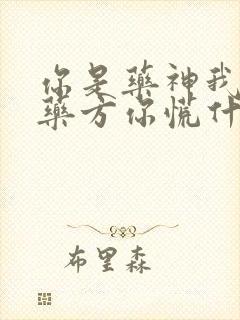 你是藥神我
藥方你慌什
布里森